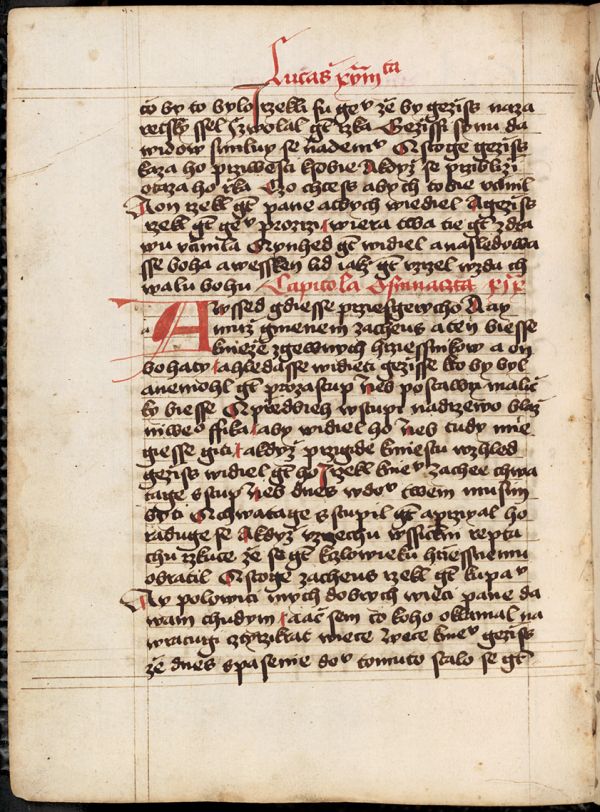 Lucas xviii ta
co by to bylo I rzekli su geᵛ ze by geziss naza
reczky ssel Zwolal gt rzka Gezissi synu da
widow smiluy se nademᵛ A stoge geziss
kaza ho prziwesti ksobie A kdyz se prziblizi
otaza ho rka Czo chcess abych tobie vcinil
A on rzekl gt pane abych wiediel A geziss
rzekl gt geᵛ prozrzi wiera twa tie gt zdra
wu vcinila A ynhed gt widiel a nasledowa
sse boha a wessken lid iakz gt vzrzel wzda ch
walu bohu Capitola Osmnaszta xix
A wssed gdiesse przies gerycho A ay
muz gmenem zacheus a ten biesse
knieze zgewnych hrziessnikow a on
bohaty a hledasse widieti gezisse kto by byl
a nemohl gt pro zastup neb postawy malic
ky biesse A przedbieh wstupi na drzewo blaz
niweᵒ ffika aby widiel ho neb tudy mie
giesse giti a kdyz przigide kmiestu wzhled
geziss widiel gt ho I rzekl kneᵛ zachee chwa
tage sstup neb dnes wdoᵛ twem musim
byti A chwatage sstupil gt a przigal ho
raduge se A kdyz vzrzechu wssickni repta
chu rzkuce ze se gt kczlowieku hrziessnemu
obratil A stoge zacheus rzekl gt kupaᵛ
Ay polowici mych dobrych wieci pane da
wam chudym a ac sem co koho oklamal na
wraczugi cztyrzikrat wiece Wece kneᵛ geziss
ze dnes spasenie doᵛ tomuto stalo se gt